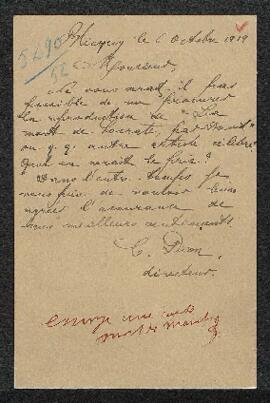 le 6 Octobre 1919
5490
52
Monsieur,
Ne vous serait-il pas
possible de me procurer
la reproduction de "La
mort de Socrate, par David"
ou q.q. autre artiste célèbre
Quel en serait le prix?
Dans l'entre-temps je
vous prie de vouloir bien
agréer l'assurance de
mes meilleurs sentiments.
directeur.
envoyé une carte